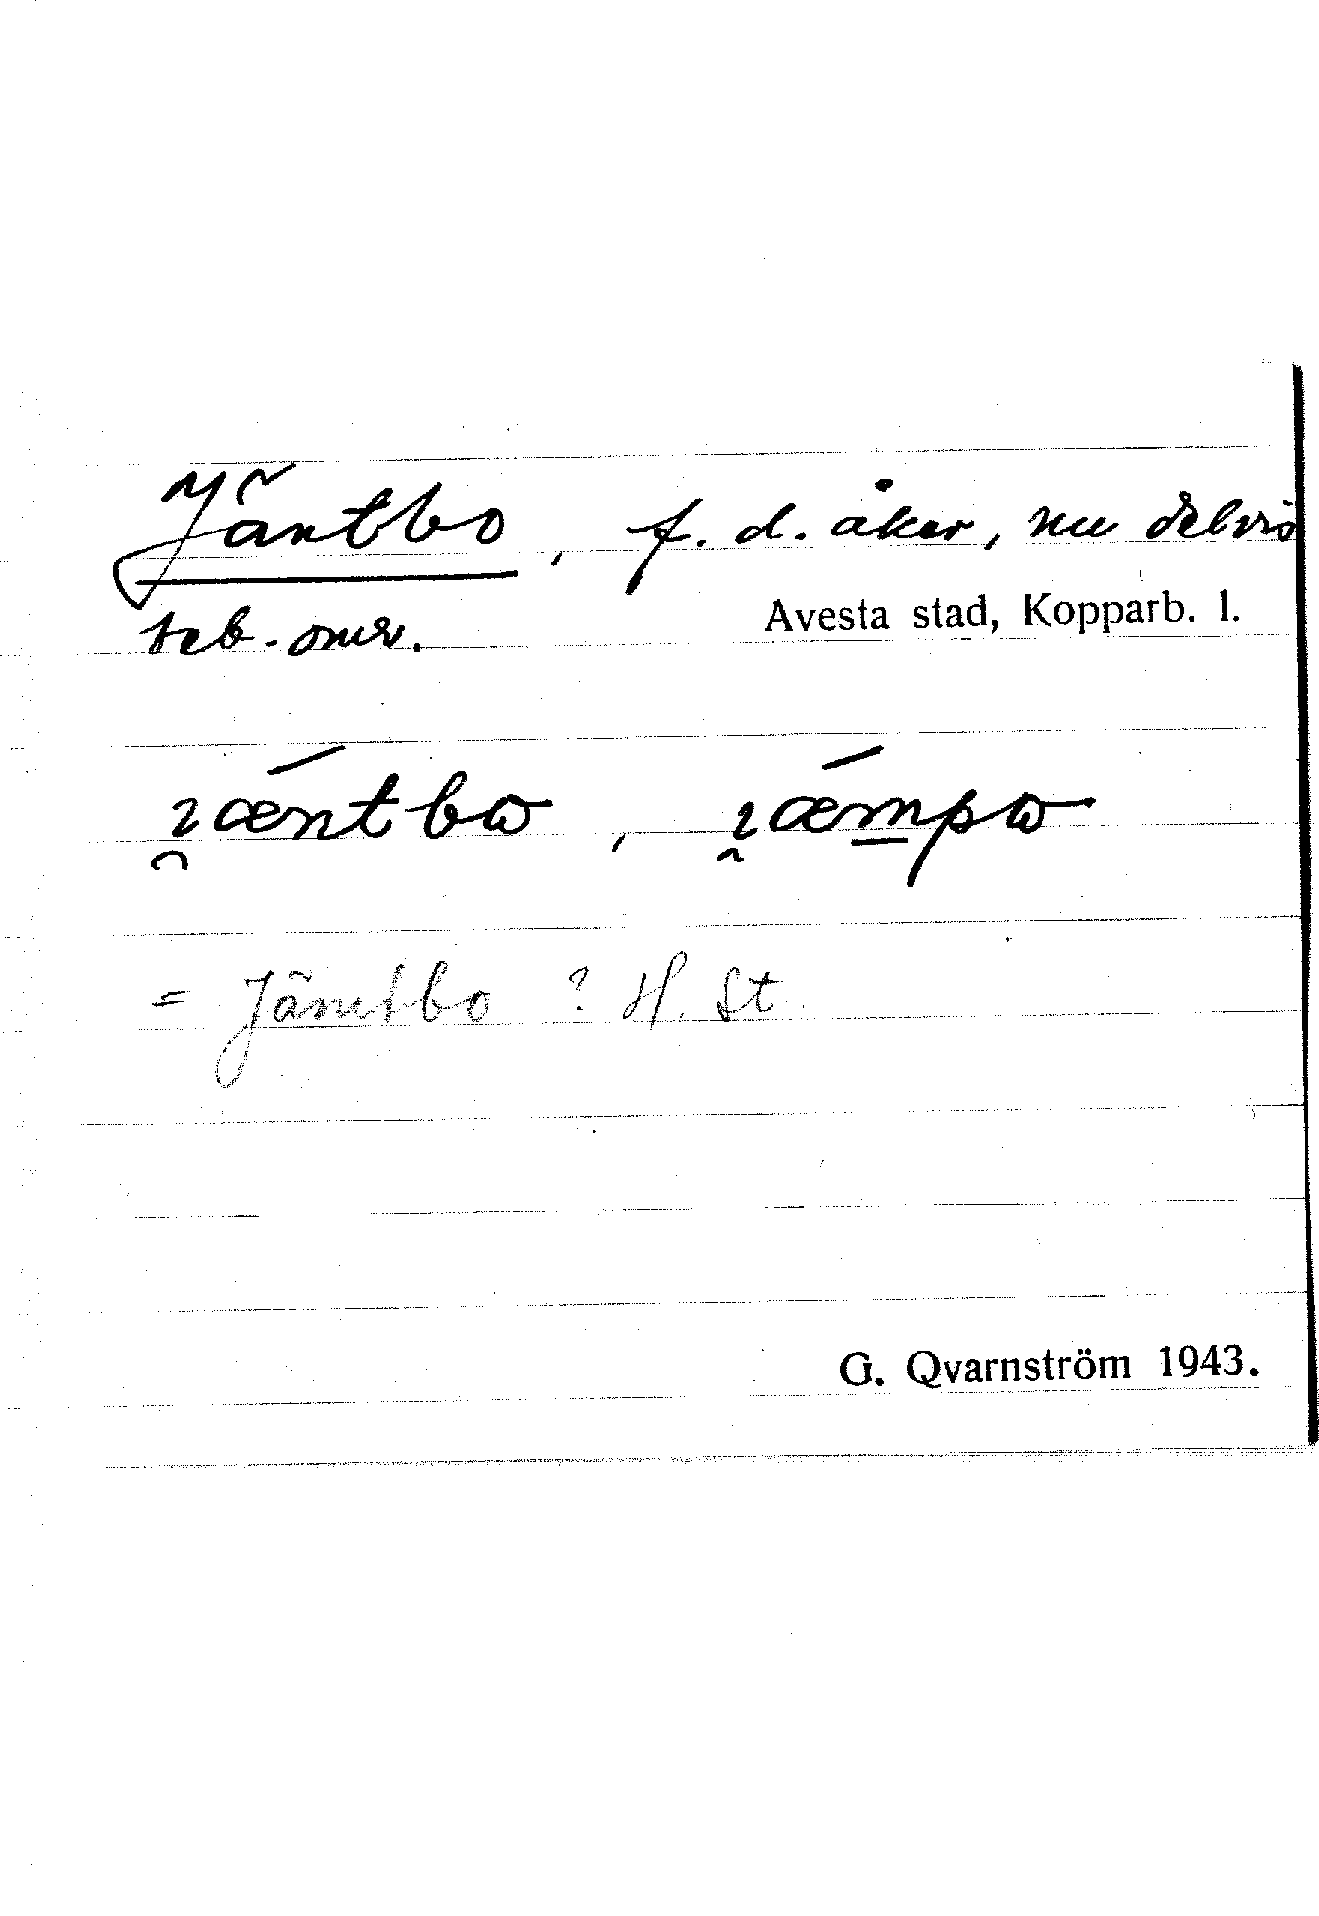 Jäntbo, f. d. åker, nu delvis
beb-omr.
Avesta stad, Kopparb. l.
ı̯æ´ntbω, ı̯æ´mpω
= Jämtbo ? H. St
G. Qvarnström 1943.